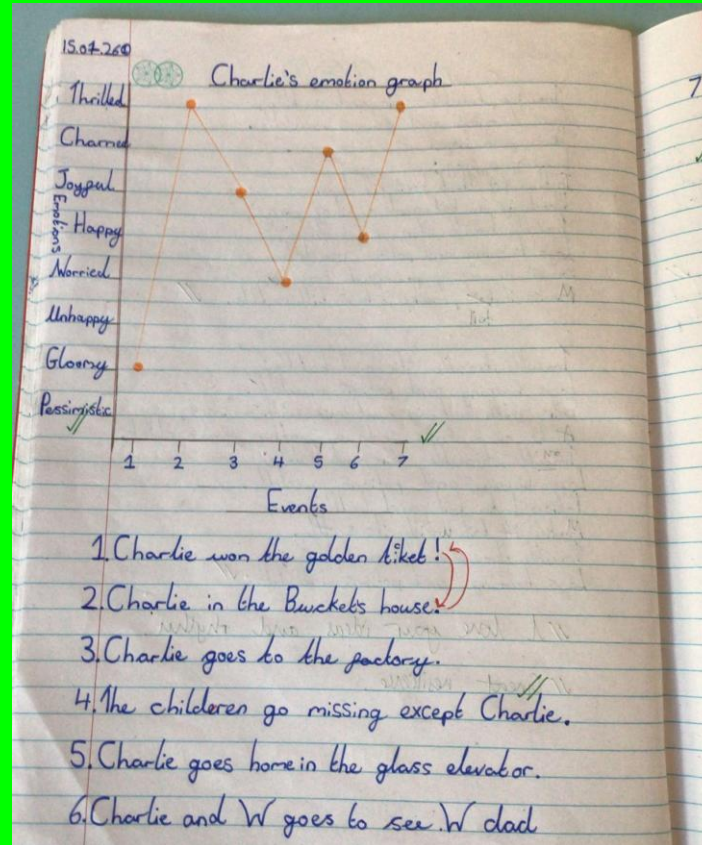 Charlie's emotion graph
Thrilled
Charmed
Joyful
Emotions
Happy
Worried
Unhappy
Gloomy
Pessimistic
1 2 3 4 5 6 7
Events
1. Charlie won the golden tiket!
2. Charlie in the Bucket's house.
3. Charlie goes to the factory.
4. The childeren go missing except Charlie.
5. Charlie goes home in the glass elevator.
6. Charlie and W goes to see W dad
7